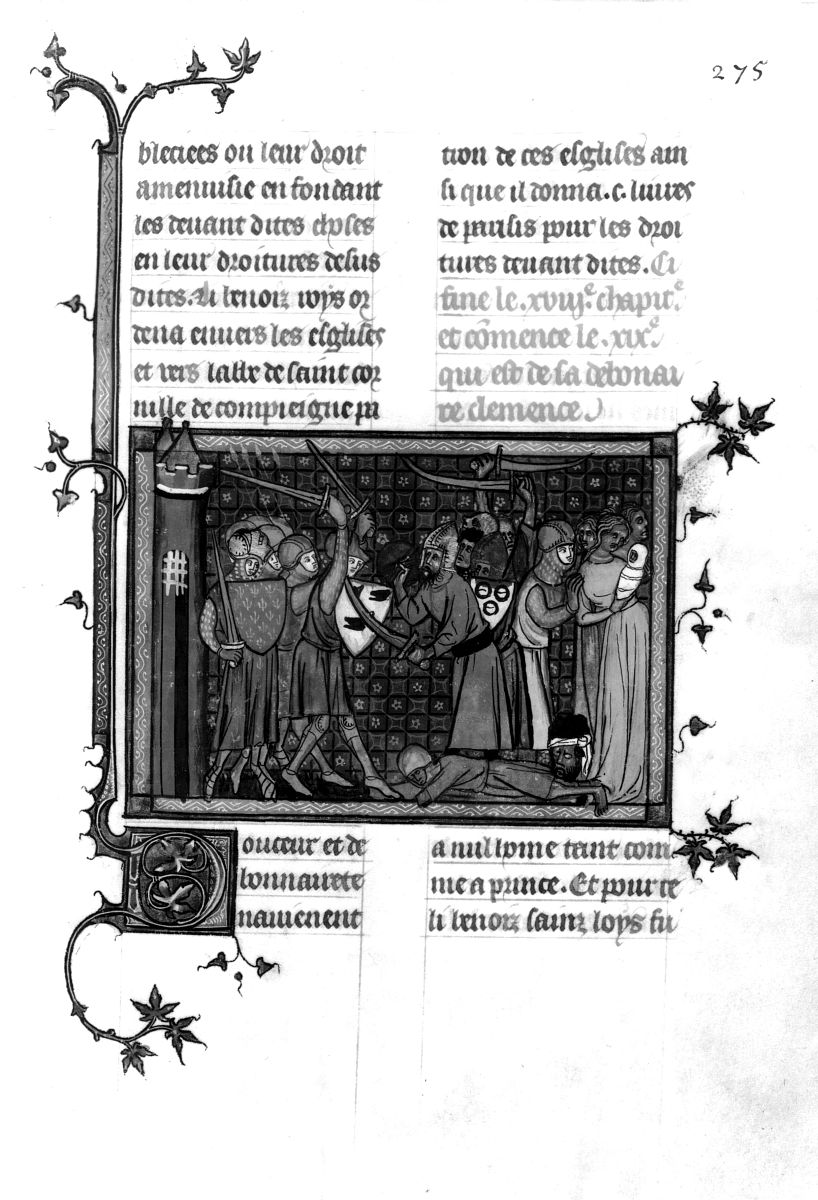 275
bleciees ou leur droit
amenuisie en fondant
les deuant dites choses
en leur droitures desus
dites. Li benoiz roys or
dena enuers les esglises
et vers labbe de saint cor
nille de compieigne pa
tion de ces esglises ain
si que il donna .c. liures
de parisis pour les droi
tures deuant dites. Ci
fine le .xviij.e chapit.e
et cōmence le .xix.e
qui est de sa debonai
re clemence
Douceur et de
bonnairete
nauienent
a nul home tant com
me a prince. Et pour ce
li benoiz sainz loys fu